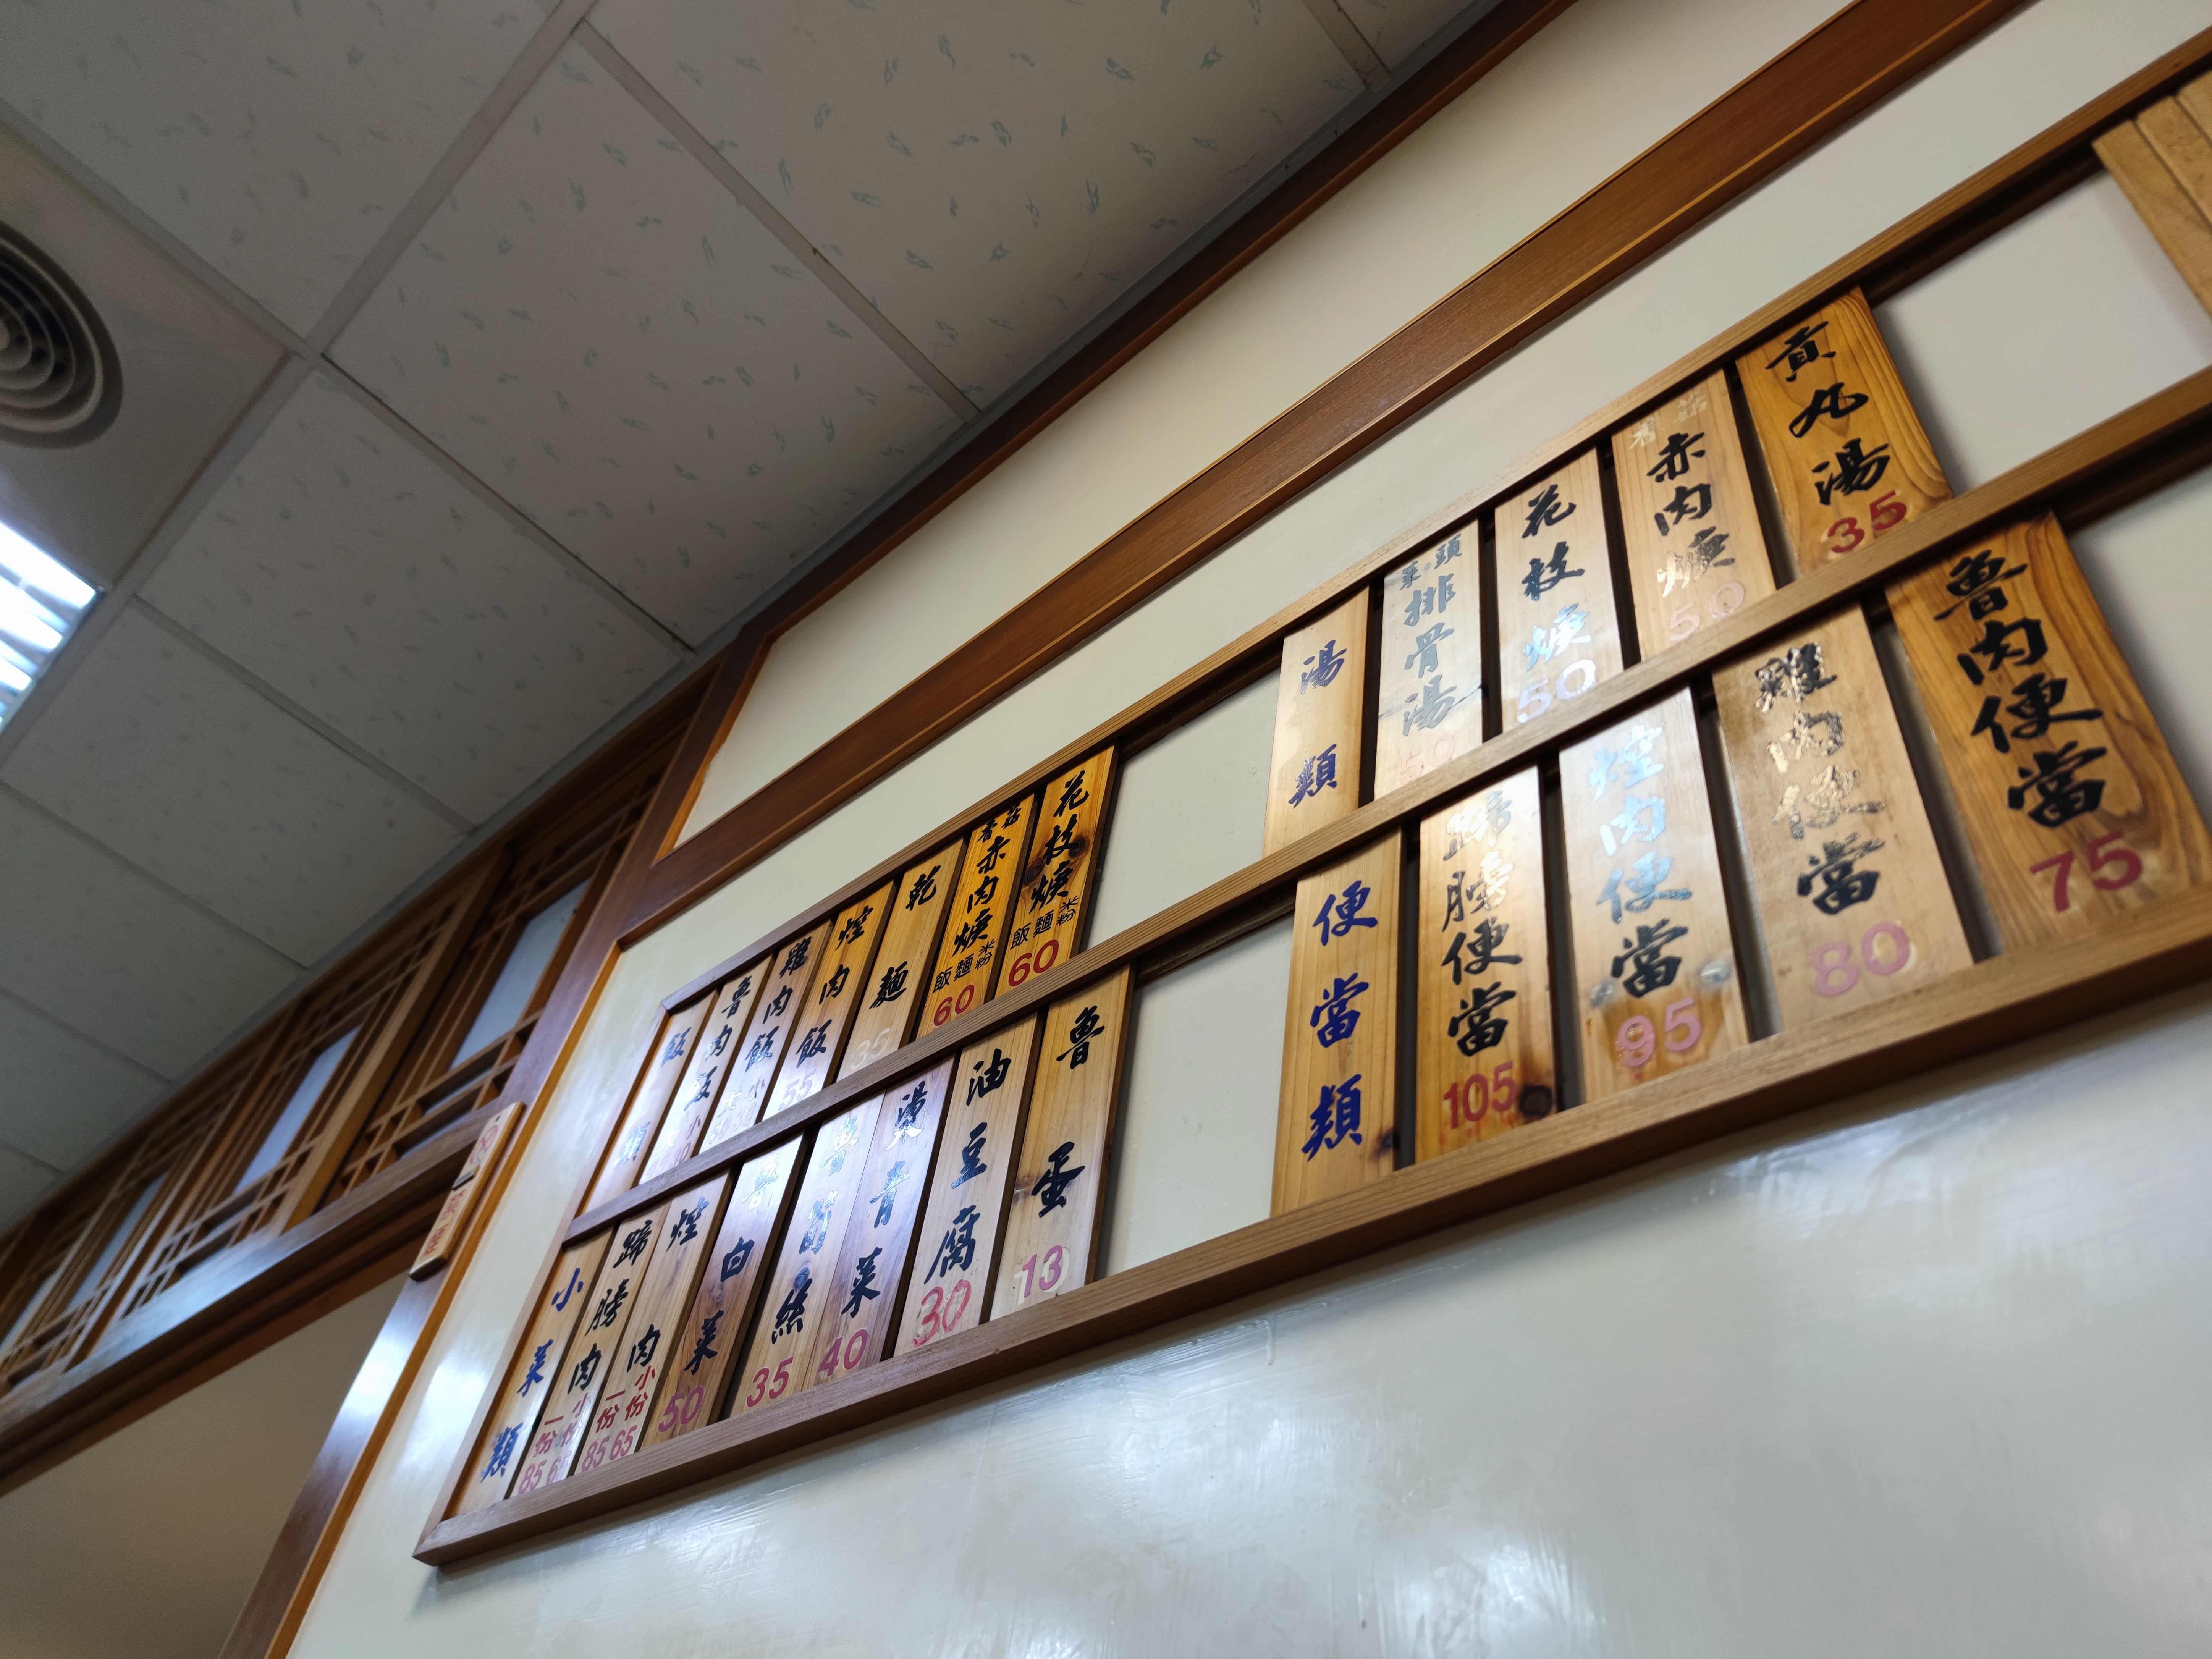 飯類
魯肉飯
雞肉飯
焢肉飯 55
乾麵 35
香菇赤肉焿 飯麵米粉 60
花枝焿 飯麵米粉 60
湯類
菜頭排骨湯 50
花枝焿 50
香菇赤肉焿 50
貢丸湯 35
小菜類
蹄膀肉 小份 65 一份 85
焢肉 小份 65 一份 85
魯白菜 50
魯筍絲 35
燙青菜 40
油豆腐 30
魯蛋 13
便當類
蹄膀便當 105
焢肉便當 95
雞肉便當 80
魯肉便當 75